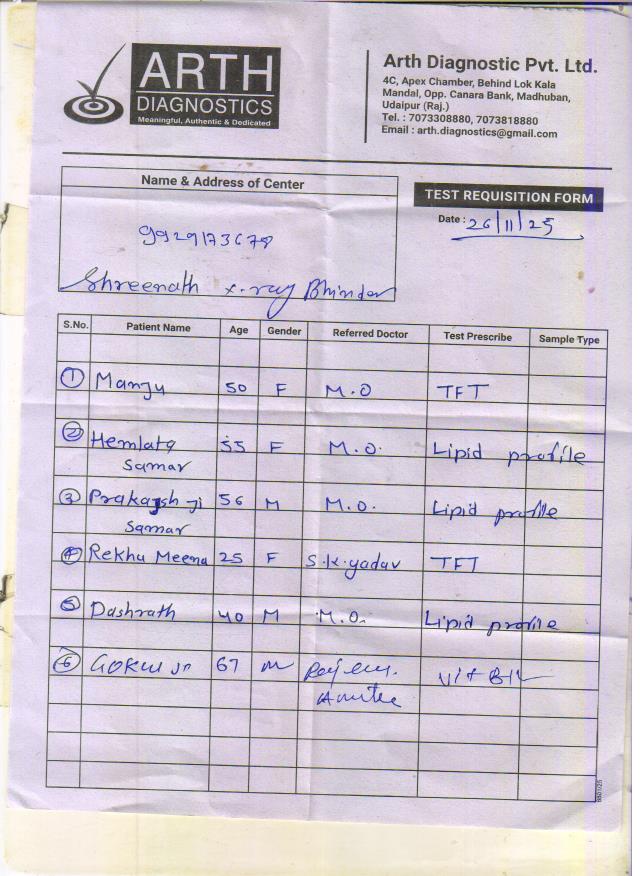 ARTH
DIAGNOSTICS
Meaningful, Authentic & Dedicated
Arth Diagnostic Pvt. Ltd.
4C, Apex Chamber, Behind Lok Kala
Mandal, Opp. Canara Bank, Madhuban,
Udaipur (Raj.)
Tel. : 7073308880, 7073818880
Email : arth.diagnostics@gmail.com
Name & Address of Center
TEST REQUISITION FORM
Date : 26/11/25
9929173678
Shreenath x-ray Bhinder
S.No. Patient Name Age Gender Referred Doctor Test Prescribe Sample Type
1 Manju 50 F M.O TFT
2 Hemlata 55 F M.O. Lipid profile
Samar
3 Prakash ji 56 M M.O. Lipid profile
Samar
4 Rekha Meena 25 F S.K.yadav TFT
5 Dashrath 40 M M.O. Lipid profile
6 Gokul 67 M Vit B12